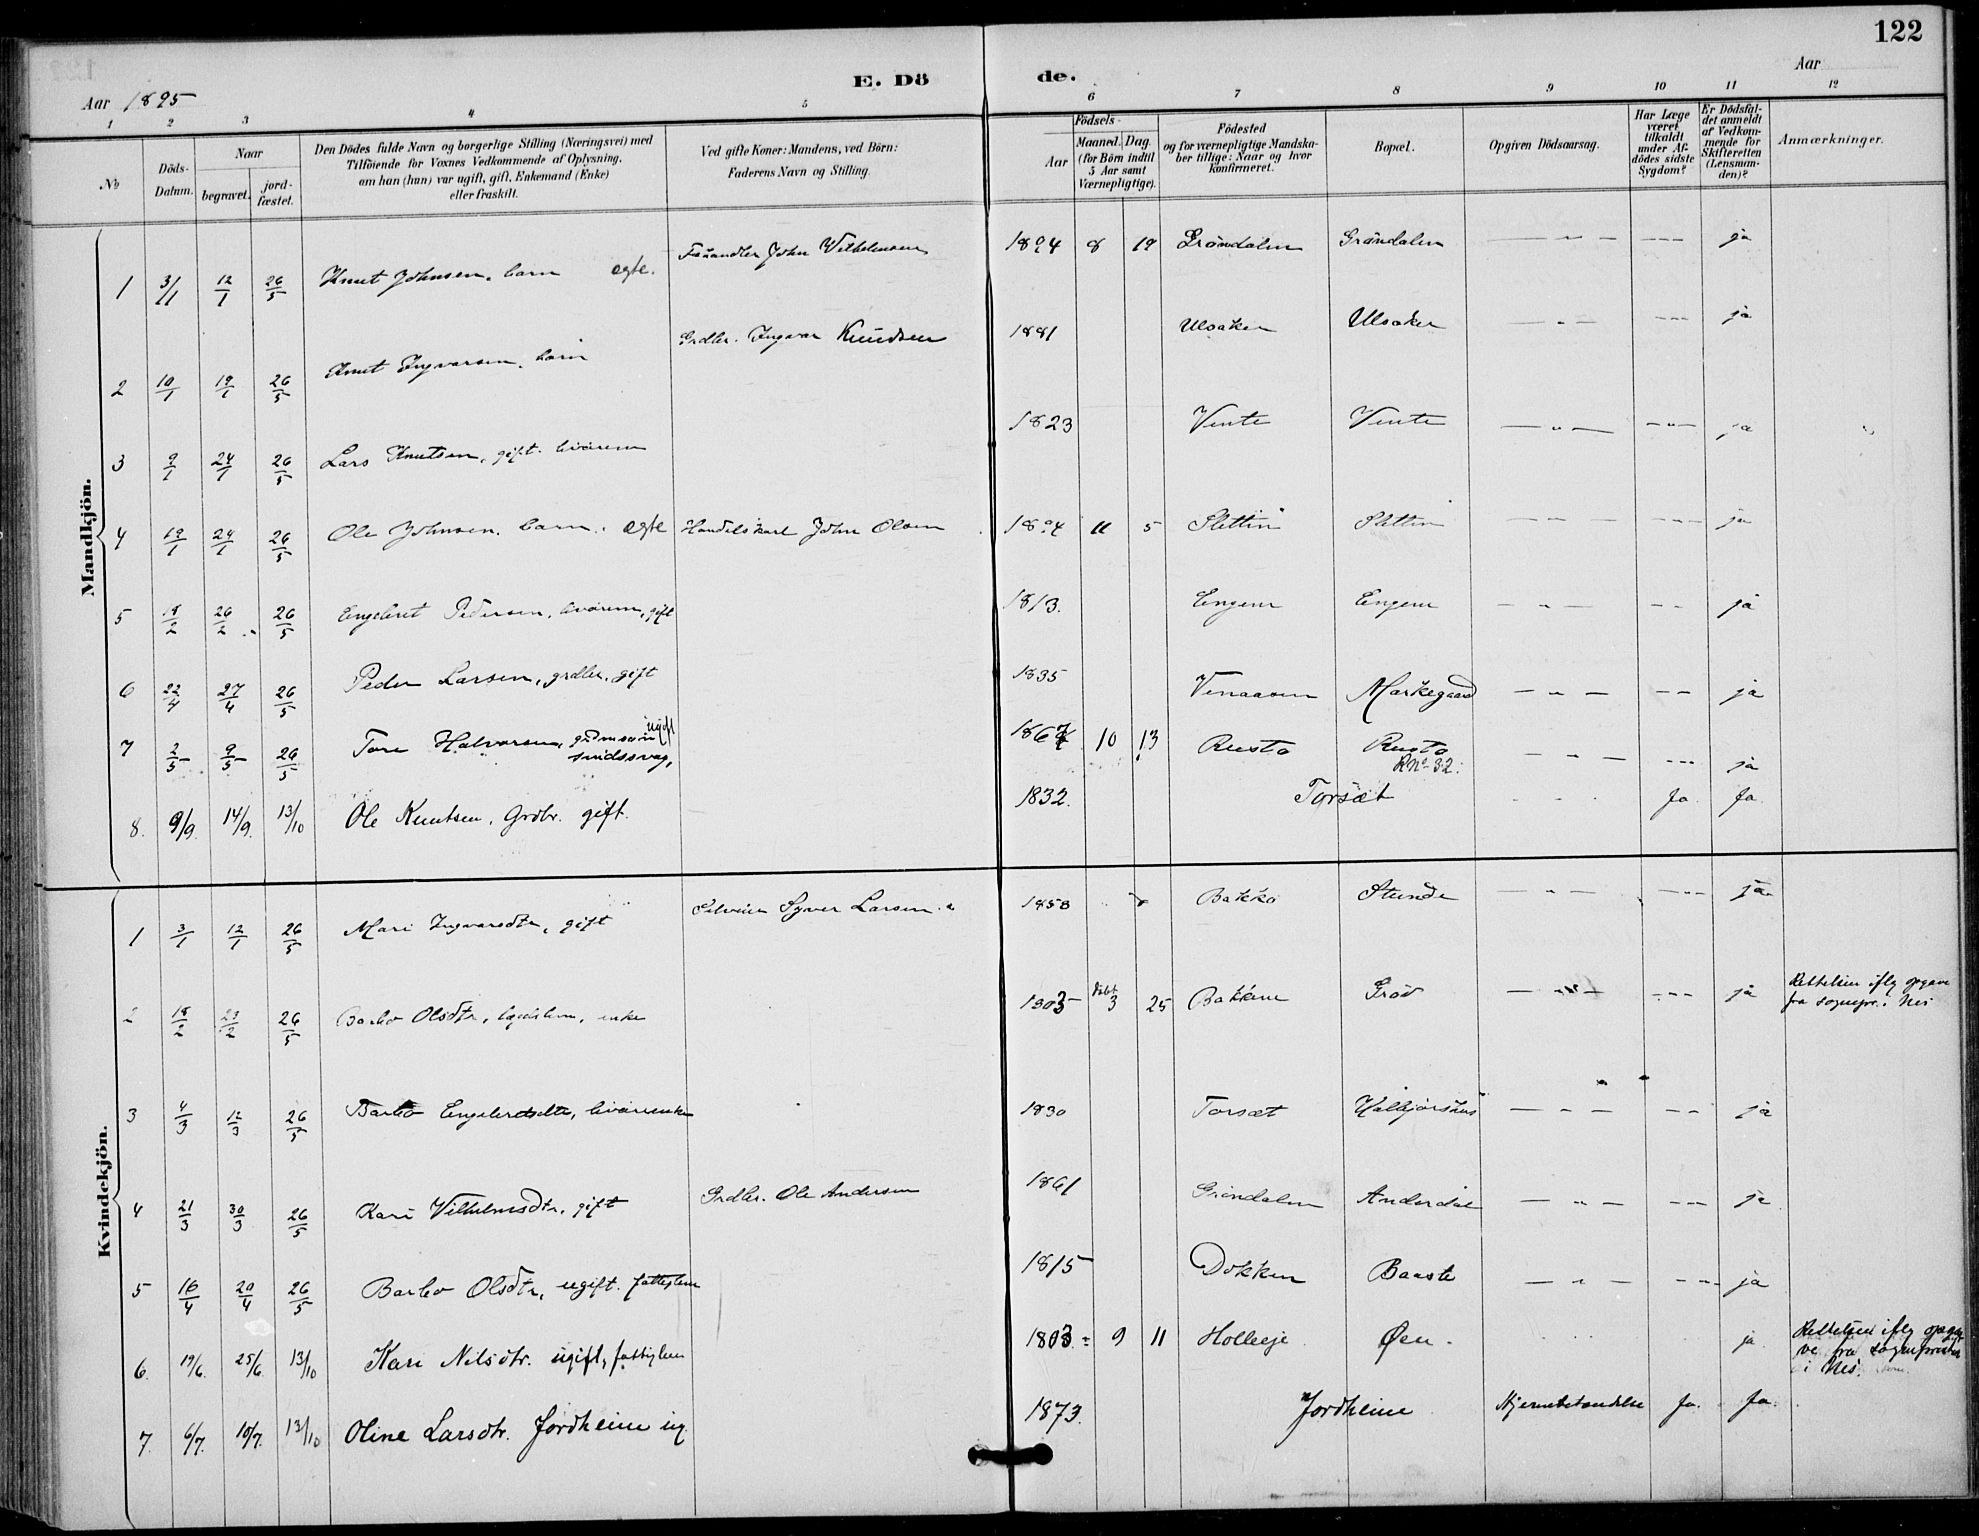 122
E. Dö de.
Aar 1895
Aar
1 2 3 4 5 6 7 8 9 10 11 12
No
Döds-Datum.
Naar
begravet.
jord-fæstet.
Den Dödes fulde Navn og borgerlige Stilling (Næringsvei) med
Tilföiende for Voxnes Vedkommende af Oplysning,
om han (hun) var ugift, gift, Enkemand (Enke)
eller fraskilt.
Ved gifte Koner: Mandens, ved Börn:
Faderens Navn og Stilling.
Födsels-
Aar
Maaned. Dag.
(for Börn indtil
5 Aar samt
Værnepligtige).
Födested
og for værnepligtige Mandska-
ber tillige: Naar og hvor
Konfirmeret.
Bopæl.
Opgiven Dödsaarsag.
Har Læge
været
tilkaldt
under Af-
dödes sidste
Sygdom?
Er Dödsfal-
det anmeldt
af Vedkom-
mende for
Skifteretten
(Lensman-
den)?
Anmærkninger.
Mandkjön.
1 3/1 12/1 26/5 Knut Johnsen, barn ægte. John Vilhelmsen 1894 8 19 Gröndalen Gröndalen — " — --- ja
2 10/1 19/1 26/5 Knut Ingvarsen, barn Grdbr. Ingvar Knudsen 1881 Ulsaker Ulsaker — " — --- ja
3 9/1 24/1 26/5 Lars Knutsen, gift. livörem 1823 Vente Vente — " — -"- ja
4 19/1 24/1 26/5 Ole Johnsen. barn. ægte Handelskarl John Olsen 1894 11 5 Slettin Slettin — — — --- ja
5 18/2 26/2 26/5 Engebret Pedersen, livörem, gift 1813. Engene Engene — " — -- ja
6 22/4 27/4 26/5 Peder Larsen, grdbr. gift 1835 Venaasen Markegaard — " — -- ja
7 2/5 9/5 26/5 Tore Halvorsen, grdmsön ugift
sindssvag, 1867 10 13 Rusto Rusto
RNo 32. — " — --- ja
8. 9/9. 14/9. 13/10 Ole Knutsen, Grdbr. gift. 1832. Torsæt Ja. Ja.
Kvindekjön.
1 3/1 12/1 26/5 Mari Ingvarsdtr, gift Selveier Syver Larsen 1858 Bakko Stunde — " — --- ja
2 18/2 23/2 26/5 Barbo Olsdtr, enke 1803 döbt 3 25 Bakkene Gröv — " — --- ja Rettelsen iflg opgave
fra sognepr. i Nes
3 4/3 12/3 26/5 Barbo Engebretsdtr, livörenke 1830 Torsæt Halbjörshus — — — -- ja
4 21/3 30/3 26/5 Kari Vilhelmsdtr, gift Grdbr. Ole Andersen 1861 Gröndalen Anderdal — " — --- ja
5 16/4 20/4 26/5 Barbo Olsdtr, ugift. fattiglem 1815 Dokken Baaste — " — --- ja
6. 19/6. 25/6. 13/10 Kari Nilsdtr. ugift, fattiglem 1803 9 11 Øen. ja. Rettelsen iflg opga-
ve fra sognepresten
i Nes.
7. 6/7. 10/7. 13/10 Oline Larsdtr. Jordheim ug. 1873. Jordheim Hjernebetændelse Ja. Ja.